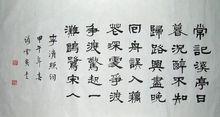 常記溪亭日
暮沉醉不知
歸路興盡晚
回舟誤入藕
花深處爭渡
爭渡驚起一
灘鷗鷺宋人
李清照詞
甲午年春